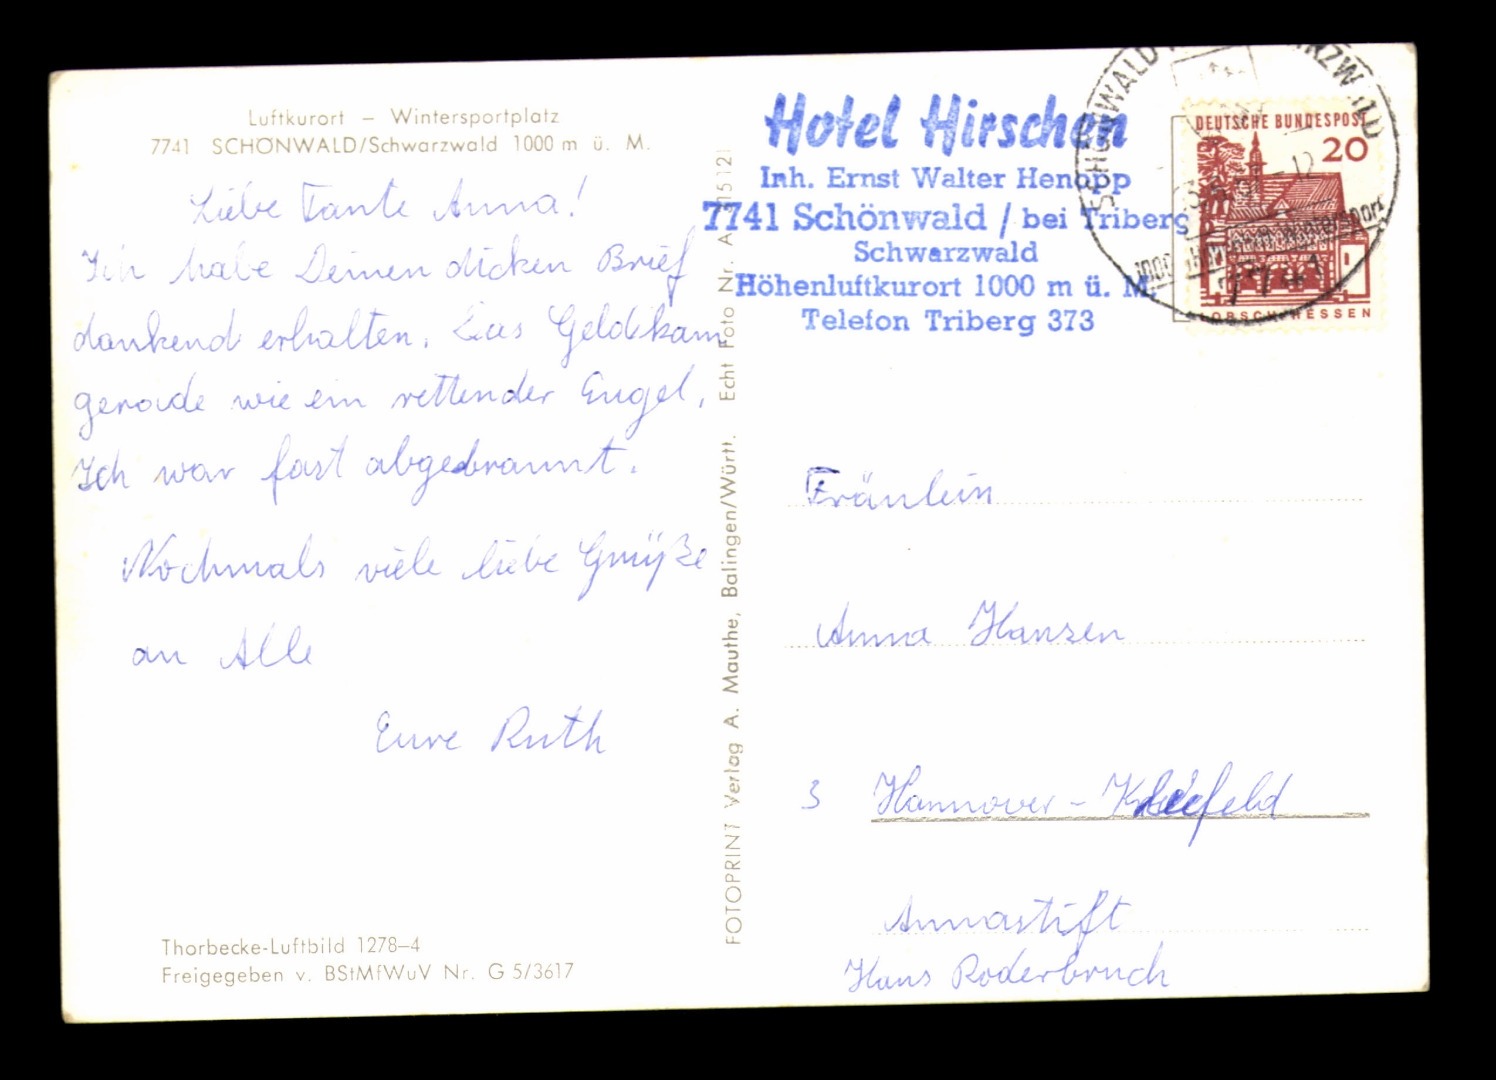 Luftkurort – Wintersportplatz
7741 SCHÖNWALD/Schwarzwald 1000 m ü. M.
Liebe Tante Anna!
Ich habe Deinen dicken Brief
dankend erhalten. Das Geld kam
gerade wie ein rettender Engel,
Ich war fast abgebrannt.
Nochmals viele liebe Grüße
an Alle
Eure Ruth
Thorbecke-Luftbild 1278–4
Freigegeben v. BStMfWuV Nr. G 5/3617
FOTOPRINT Verlag A. Mauthe, Balingen/Württ. Echt Foto Nr. A
Hotel Hirschen
Inh. Ernst Walter Henopp
7741 Schönwald / bei Triberg
Schwarzwald
Höhenluftkurort 1000 m ü. M.
Telefon Triberg 373
DEUTSCHE BUNDESPOST
20
LORSCH/HESSEN
SCHÖNWALD
7741
Fräulein
Anna Hansen
3 Hannover - Kleefeld
Annastift
Haus Roderbruch